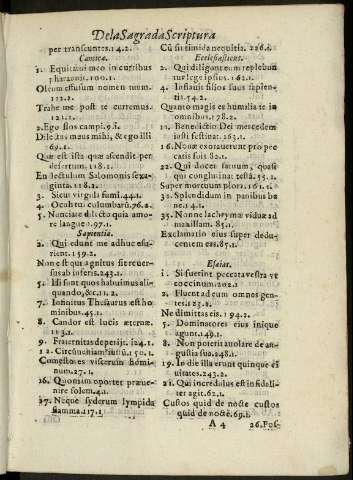 De la Sagrada Scriptura
per transeuntes. 14.2.
Cantica.
1. Equitatui meo in curribus
Pharaonis. 100.1.
Oleum effusum nomen tuum.
112.2.
Trahe me post te curremus.
121.1.
2. Ego flos campi. 9.1.
Dilectus meus mihi, & ego illi
69.1.
Quæ est ista quæ ascendit per
desertum. 118.1.
En lectulum Salomonis sexa-
ginta. 118.2.
3. Sicut virgula fumi. 44.1.
4. Oculi tui columbarũ. 76.2.
5. Nunciate dilecto quia amo-
re langueo. 97.1.
Sapientia.
2. Qui edunt me adhuc esu-
rient. 159.2.
Non est qui agnitus sit rever-
sus ab inferis. 243.1.
5. Hi sunt quos habuimus ali-
quando, &c. 11.2.
7. Infinitus Thesaurus est ho
minibus. 45.1.
8. Candor est lucis æternæ.
113.1.
9. Fraternitas deperijt. 124.1.
12. Circũsistam
Comestores viscerum homi-
num. 27.1.
16. Quoniam oportet præue-
nire solem. 4.1.
17. Neque syderum lympida
flamma. 117.1
Cũ sit timida nequitia. 226.1.
Ecclesiasticus.
Qui diligant eum replebun
tur lege ipsius. 162.1.
4. Infantis filijs suos sapien-
tia. 54.2.
Quanto magis es humilia te in
omnibus. 178.2.
10. Benedictio Dei mercedem
iusti festinat. 163.1.
16. Non exorauerunt pro pec
catis suis 82.1.
22. Qui docet fatuum, quasi
qui conglutinat testã. 55.1.
Super mortuum plora. 161.1.
31. Splendidum in panibus be
ne. 14.1.
35. Nonne lachrymæ viduæ ad
maxillam. 85.1.
Exclamatio eius super deducentem
eas. 85.1.
Esaias.
1. Si fuerint peccata vestra vt
coccinum. 202.1
2. Fluent ad eum omnes gen-
tes. 125.2.
Ne dimittas eis. 194.2.
5. Dominatores eius inique
agunt. 149.1.
8. Non poterit auolare de an-
gustia sua. 248.1.
19. In die illa erunt quinque ci
uitates. 243.2.
21. Qui incredulus est infideli
ter agit. 62.1.
Custos quid de nocte custos
quid de nocte. 69.1.
A 4 26. Pos-